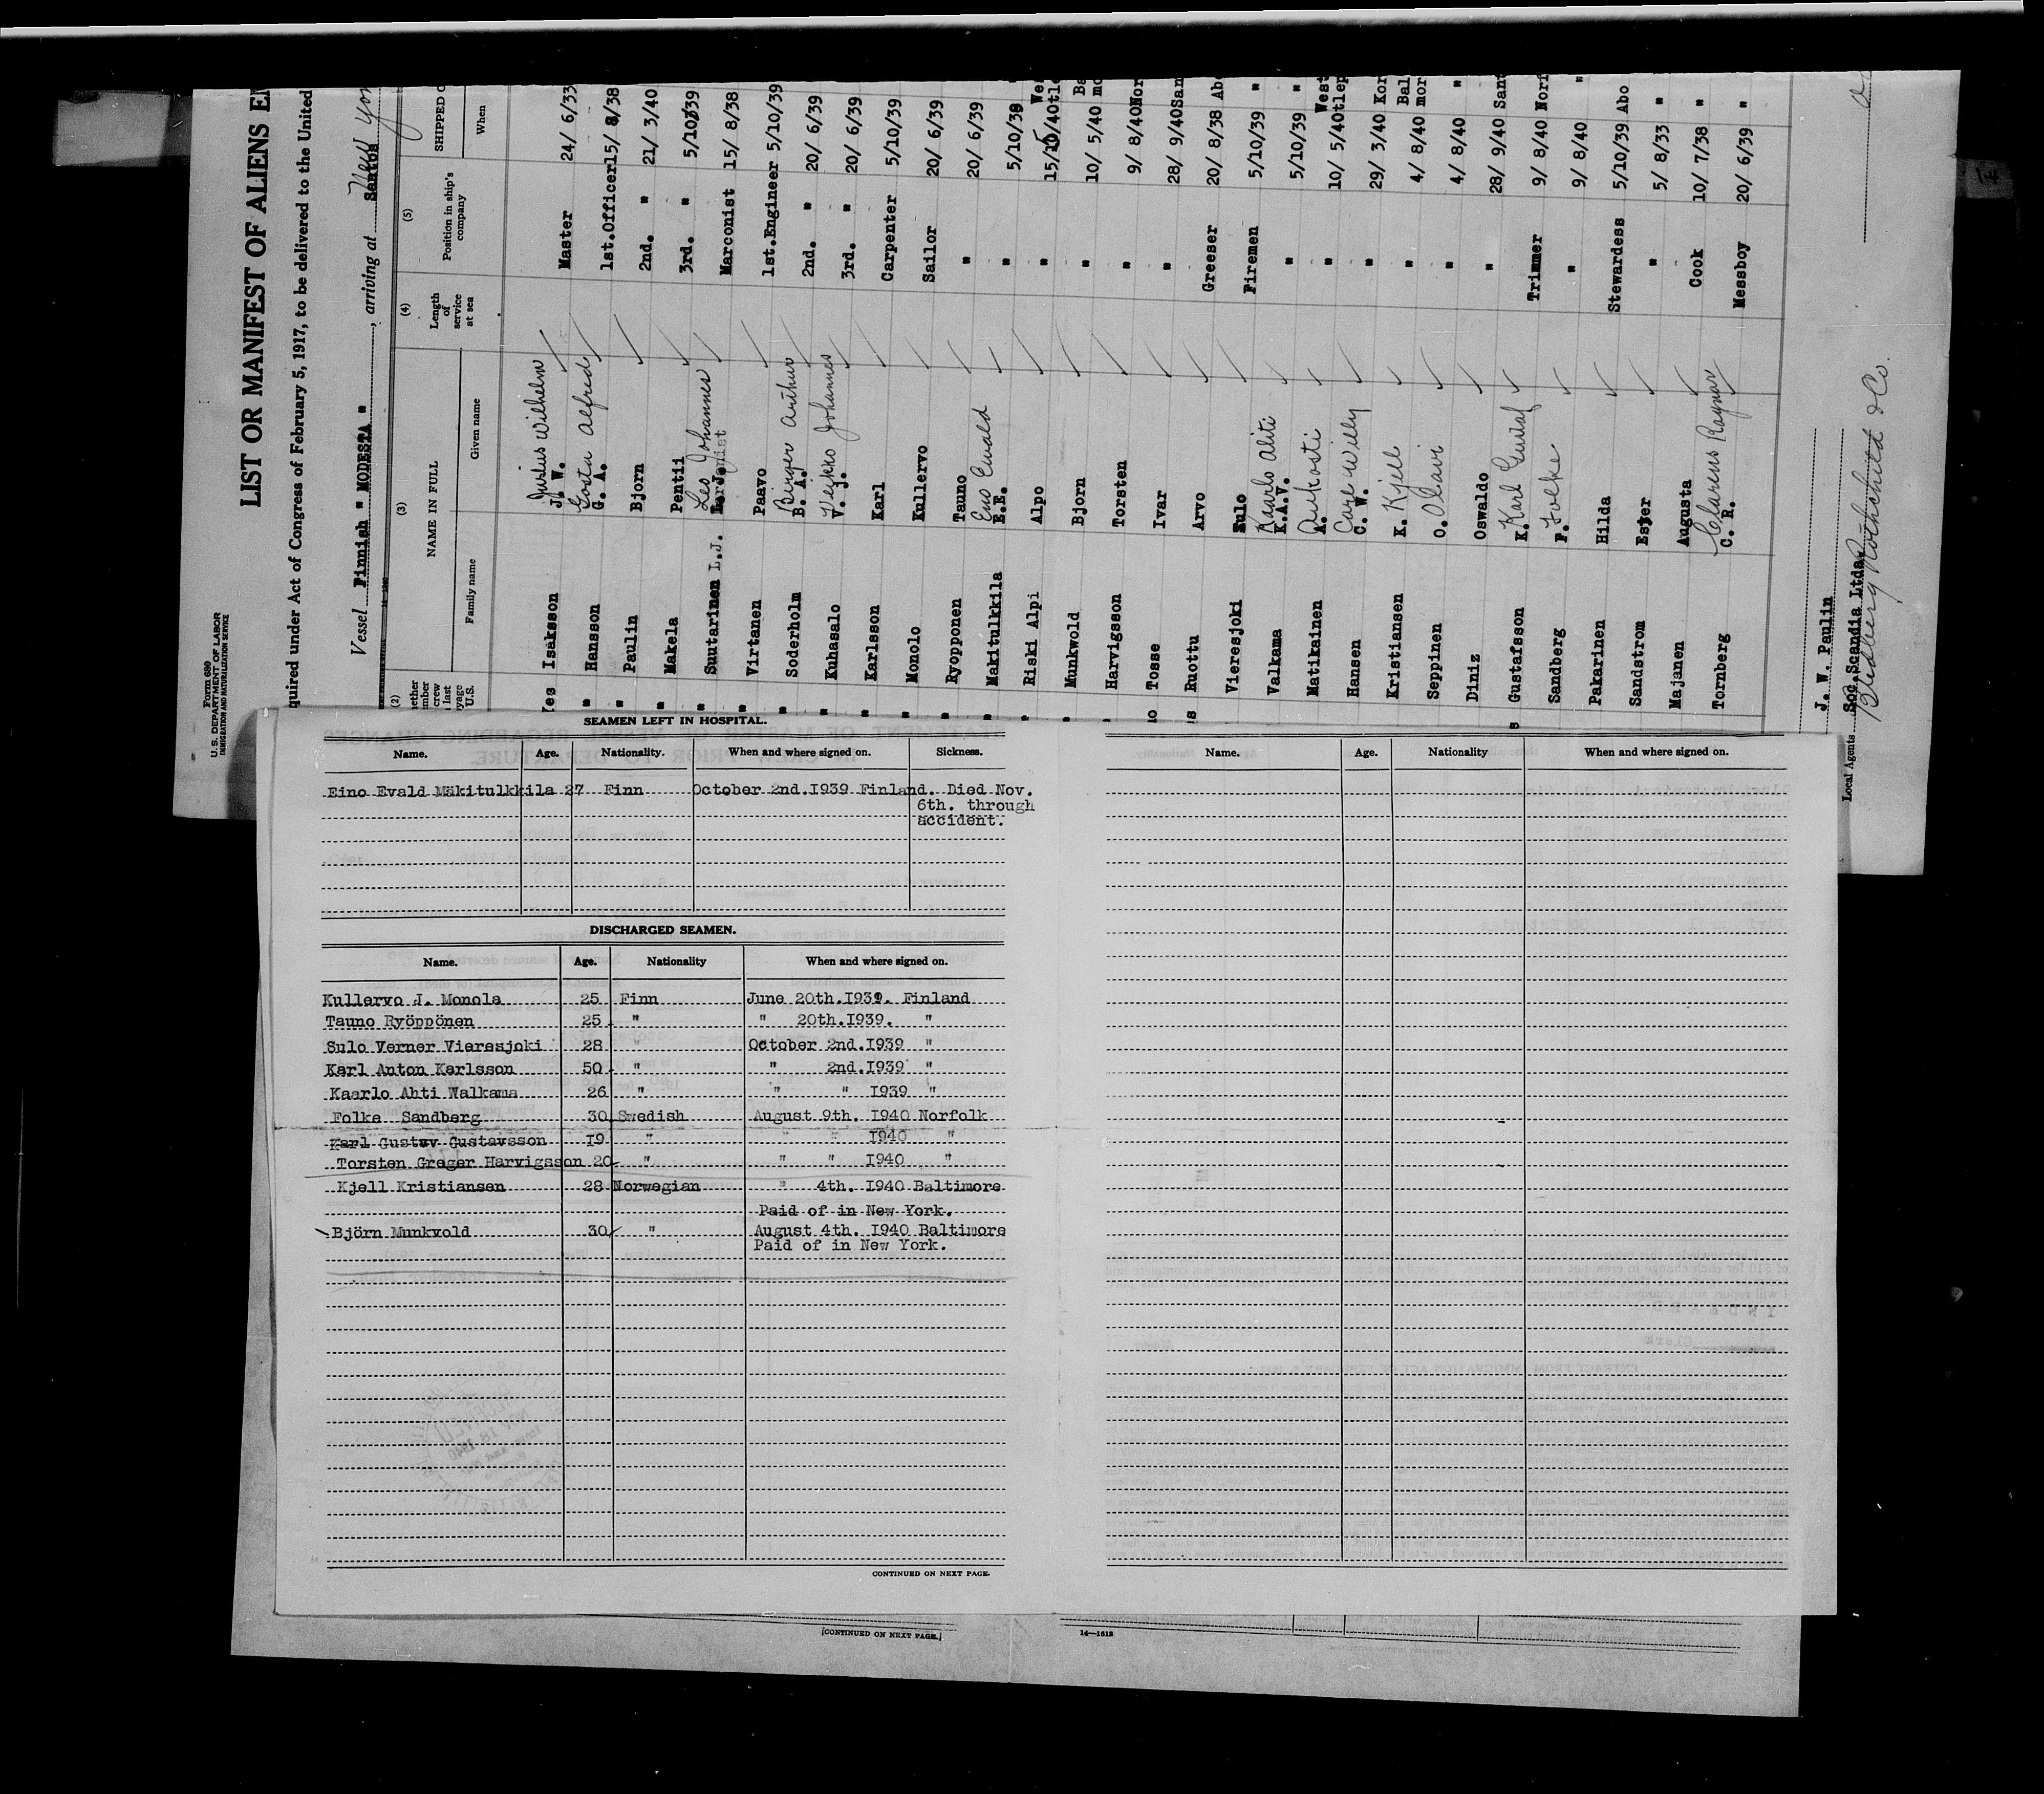 Form 680
U.S. DEPARTMENT OF LABOR
IMMIGRATION AND NATURALIZATION SERVICE
LIST OR MANIFEST OF ALIENS
quired under Act of Congress of February 5, 1917, to be delivered to the United
Vessel Finnish " MODESTA ", arriving at Santos New York
(2) (3) (4) (5)
NAME IN FULL Length of service at sea Position in ship's company SHIPPED
Family name Given name When
Yes Isaksson J. W. Justus Wilhelm Master 24/ 6/33
" Hansson G. A. Gosta Alfred 1st.Officer 15/ 8/38
" Paulin Bjorn 2nd. " 21/ 3/40
" Makela Pentii 3rd. " 5/10/39
" Suutarinen L.J. Leo Johannes Marconist 15/ 8/38
" Virtanen Paavo 1st.Engineer 5/10/39
" Soderholm B. A. Birger Arthur 2nd. " 20/ 6/39
" Kuhasalo V. J. Veikko Johannes 3rd. " 20/ 6/39
" Karlsson Karl Carpenter 5/10/39
" Monolo Kullervo Sailor 20/ 6/39
" Ryopponen Tauno " 20/ 6/39
" Makitulkkila E.E. Eino Ewald " 5/10/39
" Riski Alpi Alpo "
" Munkwold Bjorn " 10/ 5/40
" Harvigsson Torsten " 9/ 8/40 Nor
Tosse Ivar " 28/ 9/40 San
Ruottu Arvo Greeser 20/ 8/38 Abo
Vieresjoki Sulo Firemen 5/10/39 "
Valkama K.A.V. Kaarlo Ahti " 5/10/39 "
Matikainen A. " 10/ 5/40
Hansen C. W. Carl Willy " 29/ 3/40 Kor
Kristiansen K. Kjell " 4/ 8/40
Seppinen O. Olavi " 4/ 8/40 "
Diniz Oswaldo " 28/ 9/40 Sant
Gustafsson K. Karl Gustaf Trimmer 9/ 8/40 Nor
Sandberg F. Folke " 9/ 8/40 "
Pakarinen Hilda Stewardess 5/10/39 Abo
Sandstrom Ester " 5/ 8/33 "
Majanen Augusta Cook 10/ 7/38 "
Tornberg C. R. Clarens Ragnar Messboy 20/ 6/39 "
J. W. Paulin
Local Agents Soc.Scandia Ltda.
SEAMEN LEFT IN HOSPITAL.
Name. Age. Nationality. When and where signed on. Sickness.
Eino Evald Mäkitulkkila 27 Finn October 2nd.I939 Finland. Died Nov.
6th. through
accident.
DISCHARGED SEAMEN.
Name. Age. Nationality When and where signed on.
Kullervo J. Monola 25 Finn June 20th.I939. Finland
Tauno Ryöppönen 25 " " 20th.I939. "
Sulo Verner Vieresjoki 28 " October 2nd.I939 "
Karl Anton Karlsson 50 " " 2nd.I939 "
Kaarlo Ahti Walkama 26 " " " I939 "
Folke Sandberg 30 Swedish August 9th. I940 Norfolk
Karl Gustav Gustavsson I9 " " " I940 "
Torsten Greger Harvigsson 20 " " " I940 "
Kjell Kristiansen 28 Norwegian " 4th. I940 Baltimore
Paid of in New York.
Björn Munkvold 30 " August 4th. I940 Baltimore
Paid of in New York.
CONTINUED ON NEXT PAGE.
Name. Age. Nationality When and where signed on.
[CONTINUED ON NEXT PAGE.]
14—1613